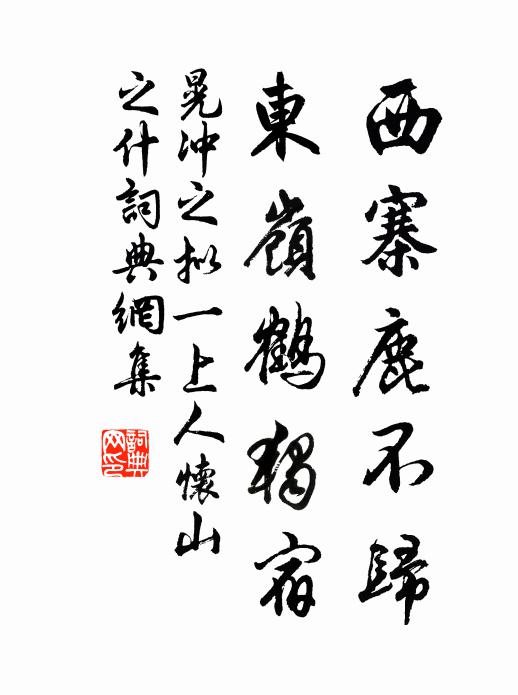 西寨鹿不歸
東嶺鶴獨宿
晁冲之拟一上人懷山
之什詞典網集
詞典網印